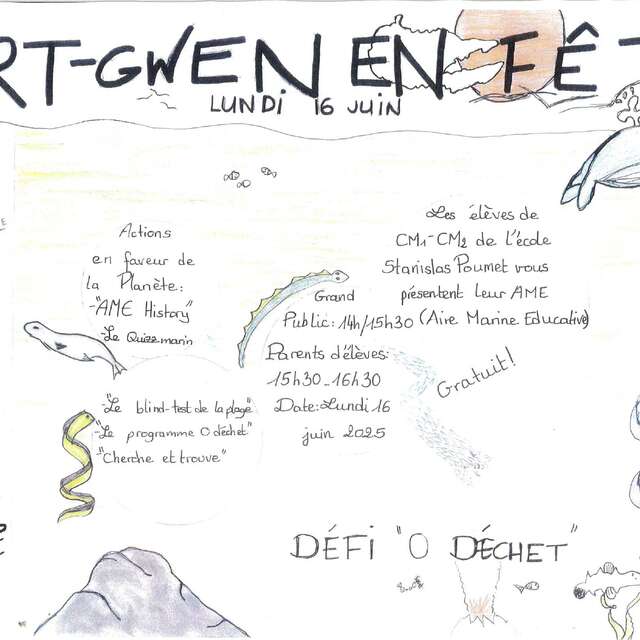 RT-GWEN EN FÊT
LUNDI 16 JUIN
Actions
en faveur de
la Planète:
-"AME History"
-Le Quizz marin
-"Le blind-test de la plage"
-"Le programme 0 déchet"
-"Cherche et trouve"
Grand
Public: 14h/15h30
Parents d'élèves:
15h30-16h30
Date: Lundi 16
juin 2025
Les élèves de
CM1-CM2 de l'école
Stanislas Poumet vous
présentent leur AME
(Aire Marine Educative)
Gratuit!
DÉFI "0 DÉCHET"